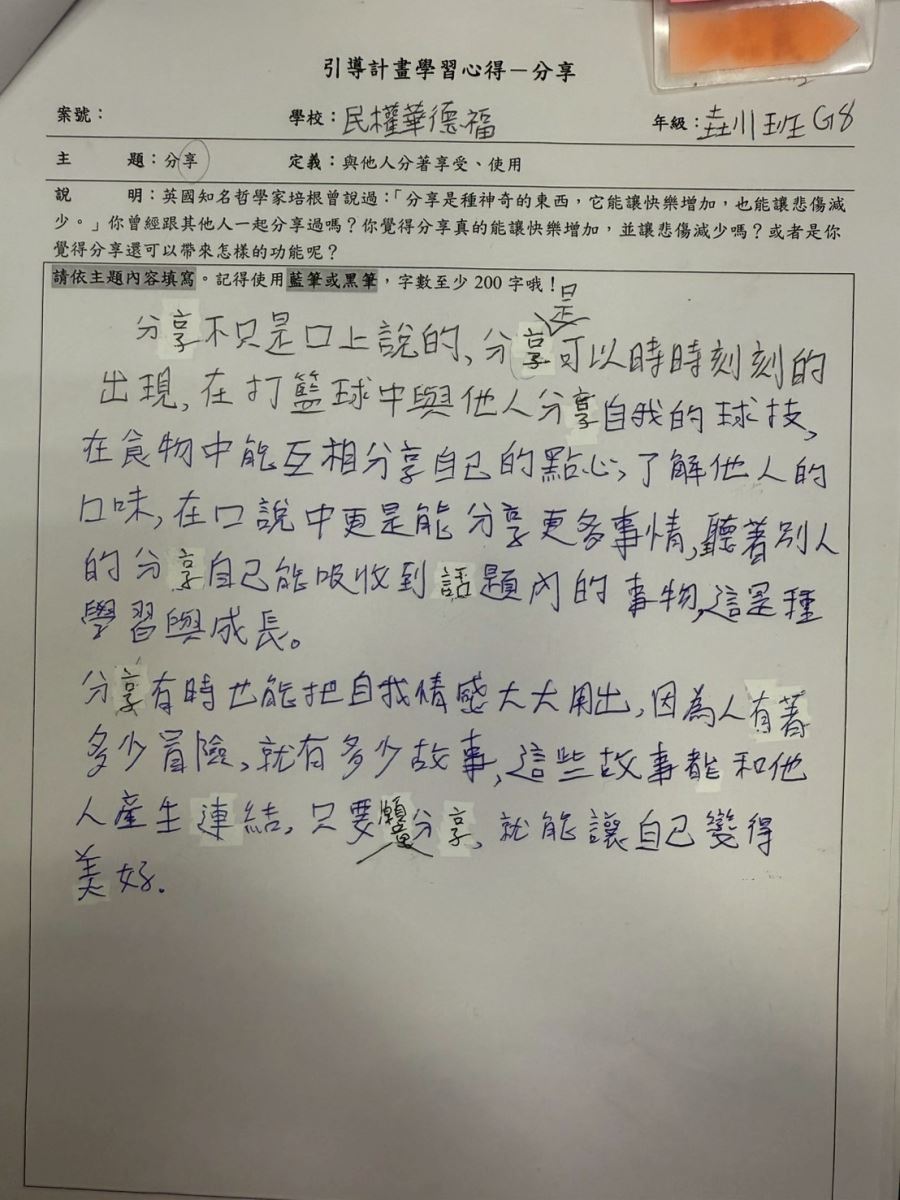 引導計畫學習心得－分享
案號： 學校：民權華德福 年級：垚川班G8
主 題：分享 定義：與他人分著享受、使用
說 明：英國知名哲學家培根曾說過：「分享是種神奇的東西，它能讓快樂增加，也能讓悲傷減
少。」你曾經跟其他人一起分享過嗎？你覺得分享真的能讓快樂增加，並讓悲傷減少嗎？或者是你
覺得分享還可以帶來怎樣的功能呢？
請依主題內容填寫。記得使用藍筆或黑筆，字數至少 200 字哦！
分享不只是口上說的，分享是可以時時刻刻的
出現，在打籃球中與他人分享自我的球技，
在食物中能互相分享自己的點心，了解他人的
口味，在口說中更是能分享更多事情，聽著別人
的分享自己能吸收到話題內的事物，這是種
學習與成長。
分享有時也能把自我情感大大用出，因為人有著
多少冒險，就有多少故事，這些故事都能和他
人產生連結，只要願意分享，就能讓自己變得
美好。